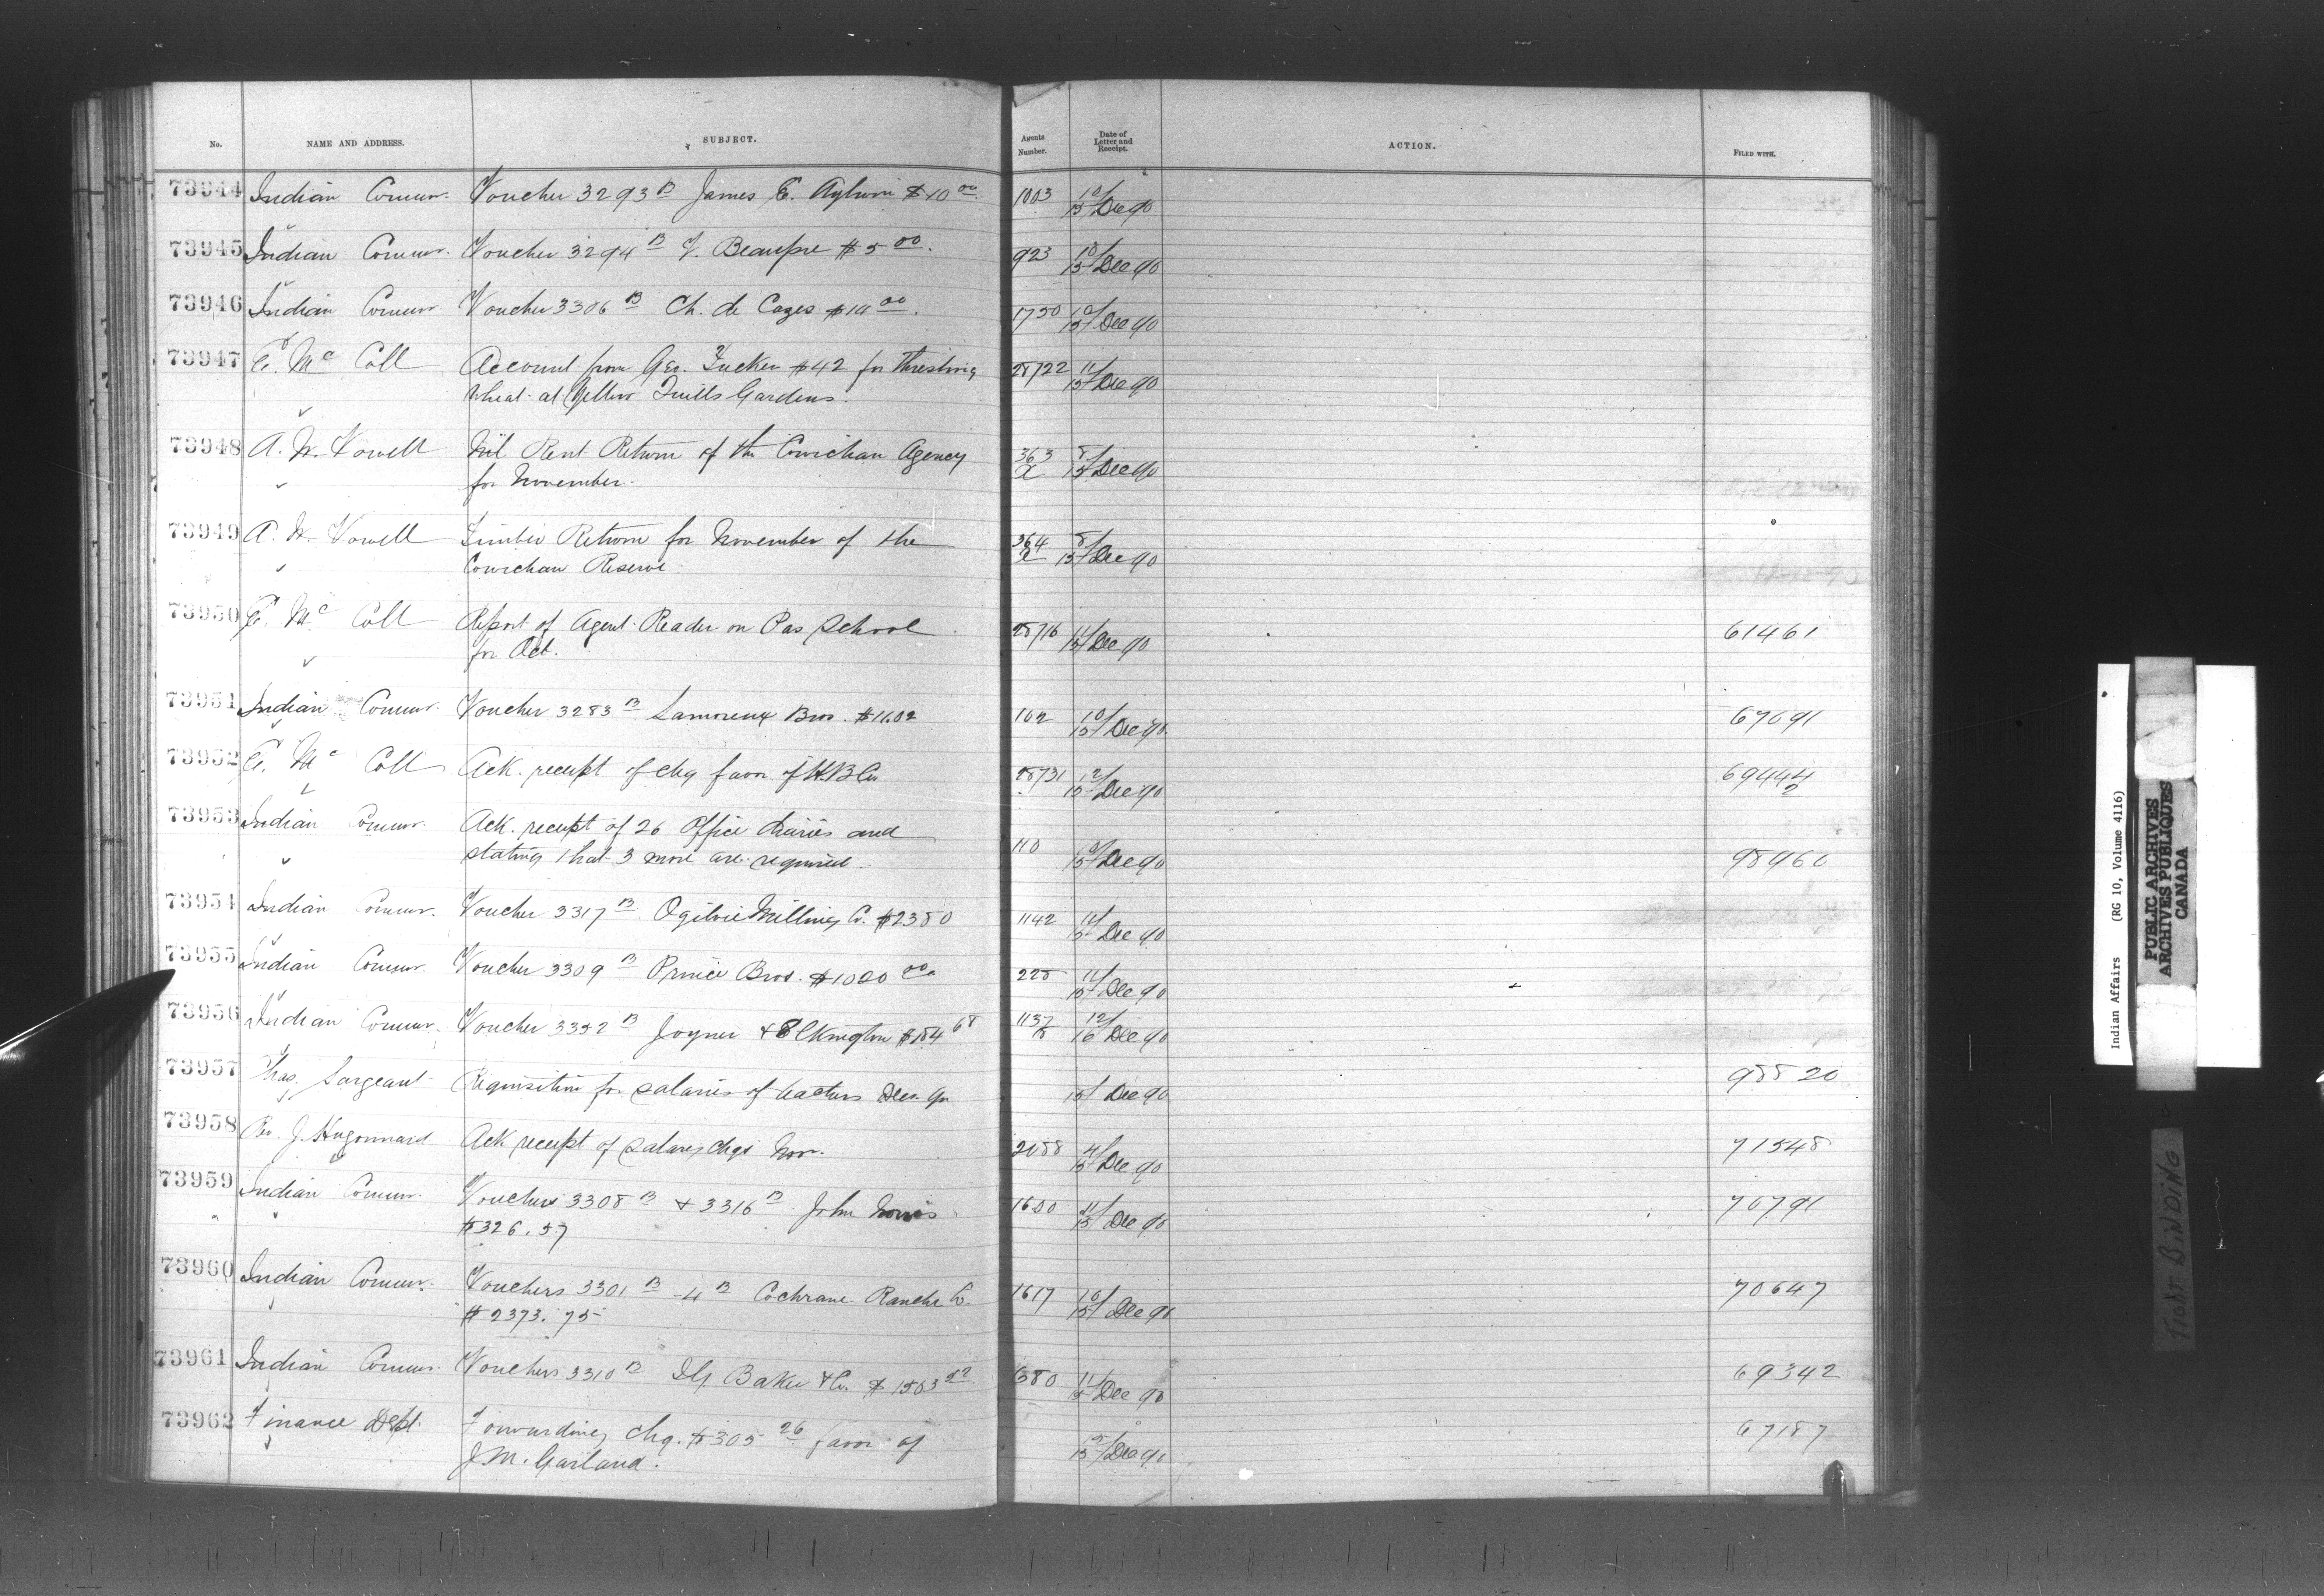 No. NAME AND ADDRESS. SUBJECT. Agents Number. Date of Letter and Receipt. ACTION. FILED WITH.
73944 Indian Commr. Voucher 3293 B James E. Aylwin $10 00 1003 10/15 Dec 90
73945 Indian Commr. Voucher 3294 B Beaupre $5 00. 923 10/15 Dec 90
73946 Indian Commr. Voucher 3306 B Ch. de Cazes $14 00. 1750 10/15 Dec 90
73947 E. Mc Coll Account from Geo. Tucker $42 for threshing 28722 11/15 Dec 90
wheat at Yellow Quills Gardens.
73948 A. W. Vowell Nil Rent Return of the Cowichan Agency 363 a 8/15 Dec 90
for November.
73949 A. W. Vowell Timber Return for November of the 364 a 8/15 Dec 90
Cowichan Reserve.
73950 E. Mc Coll Report of Agent Reader on Pas School 28716 11/15 Dec 90 61461
for Oct.
73951 Indian Commr. Voucher 3283 B Lamoreux Bros. $1602 102 10/15 Dec 90 67691
73952 E. Mc Coll Ack. receipt of chq favor of H.B Co 28731 12/15 Dec 90 69444 2
73953 Indian Commr. Ack. receipt of 26 Office diaries and 110 15 Dec 90 98960
stating that 3 more are required.
73954 Indian Commr. Voucher 3317 B Ogilvie Milling Co. $2380 1142 11/15 Dec 90
73955 Indian Commr. Voucher 3309 B Prince Bros. $1020 00 225 11/15 Dec 90
73956 Indian Commr. Voucher 3352 B Joyner & Elkington $184 68 1137 12/16 Dec 90
73957 Chas. Sargeant Requisition for salaries of teachers Dec. qr 15/ Dec 90 98820
73958 Rev. J. Hugonnard Ack receipt of salary chqs Nov. 2088 4/15 Dec 90 71548
73959 Indian Commr. Vouchers 3308 B & 3316 B John Norris 1600 11/15 Dec 90 70791
$326.57
73960 Indian Commr. Vouchers 3301 B - 4 B Cochrane Ranche Co. 1617 10/15 Dec 90 70647
$2373.75
73961 Indian Commr. Vouchers 3310 B I.G. Baker & Co. $1503 52 680 11/15 Dec 90 69342
73962 Finance Dept. Forwarding chq. $305 26 favor of 15/15 Dec 90 67187
J.M. Garland.
Indian Affairs (RG 10, Volume 4116)
PUBLIC ARCHIVES
ARCHIVES PUBLIQUES
CANADA
TIGHT BINDING